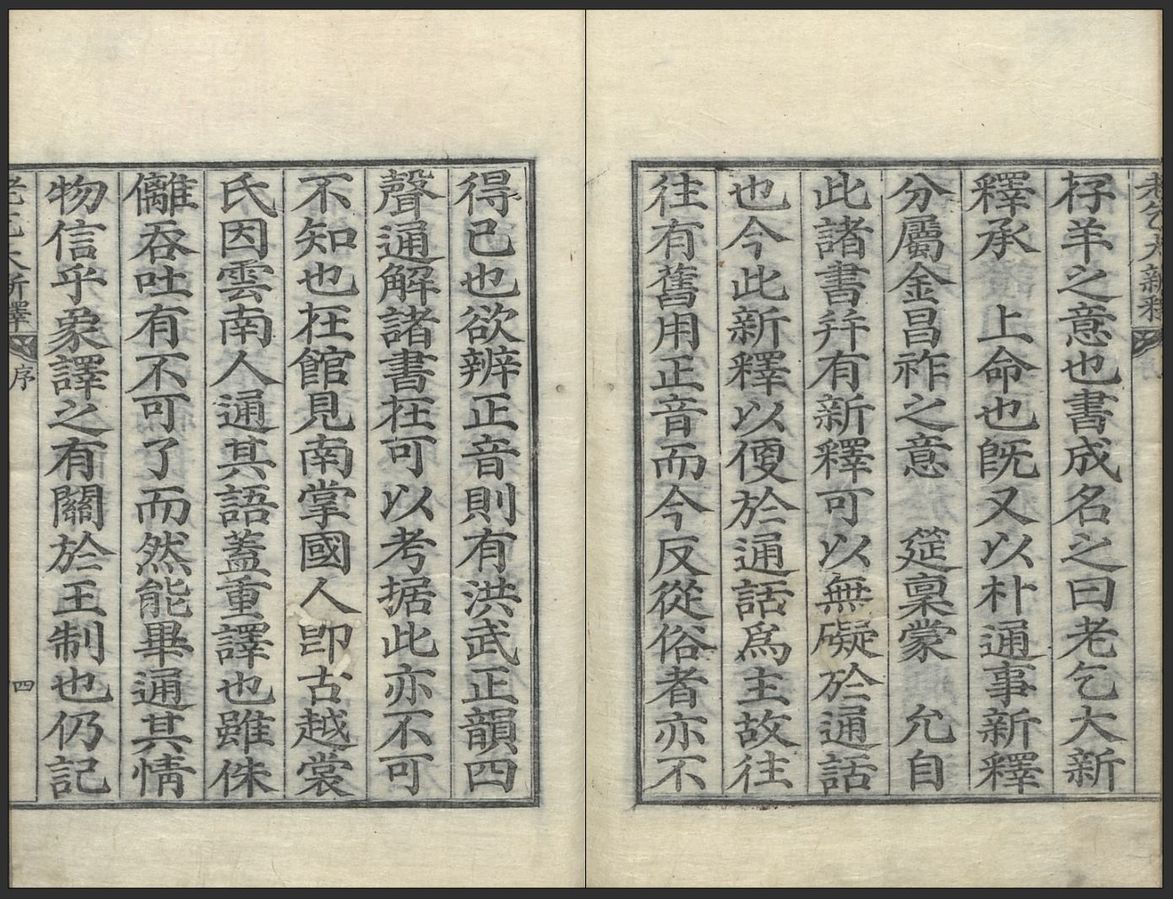 老乞大新釋
存羊之意也書成名之曰老乞大新
釋承 上命也旣又以朴通事新釋
分屬金昌祚之意 筵稟蒙 允自
此諸書幷有新釋可以無礙於通話
也今此新釋以便於通話爲主故往
往有舊用正音而今反從俗者亦不
得已也欲辨正音則有洪武正韻四
聲通解諸書在可以考据此亦不可
不知也在館見南掌國人卽古越裳
氏因雲南人通其語蓋重譯也雖侏
儺吞吐有不可了而然能畢通其情
物信乎象譯之有關於王制也仍記
老乞大新釋 序 四